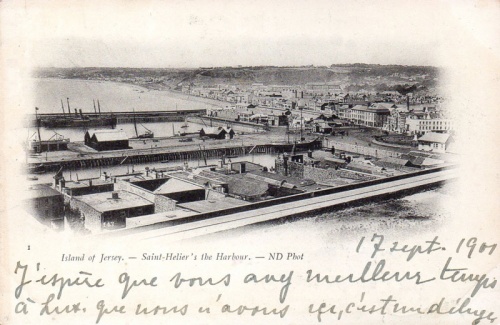 1
Island of Jersey. — Saint-Helier's the Harbour. — ND Phot
17 Sept. 1901
J'espère que vous avez meilleur temps
à Lux. que nous n'avons ici, c'est un déluge